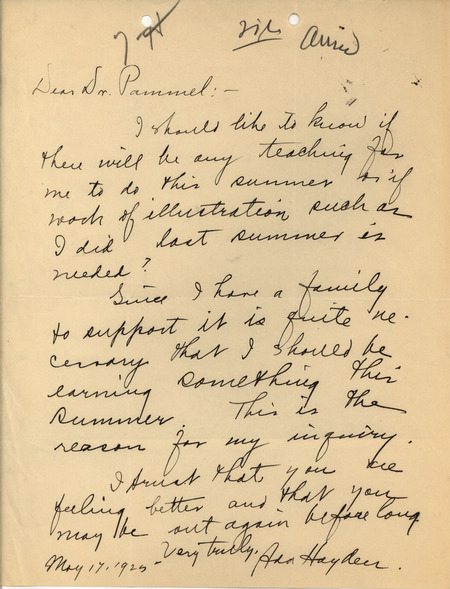 Dear Dr. Pammel:-
I should like to know if
there will be any teaching for
me to do this summer or if
work of illustration such as
I did last summer is
needed?
Since I have a family
to support it is quite ne-
cessary that I should be
earning something this
summer. This is the
reason for my inquiry.
I trust that you are
feeling better and that you
may be out again before long
Very truly,
May 17, 1925- Ada Hayden.